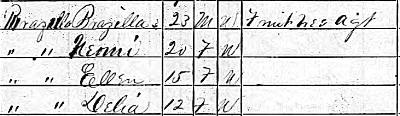 Brazilla Brazilla 23 M W Fruit Tree Agt
" " Neomi 20 F W
" " Ellen 15 F W
" " Delia 12 F W